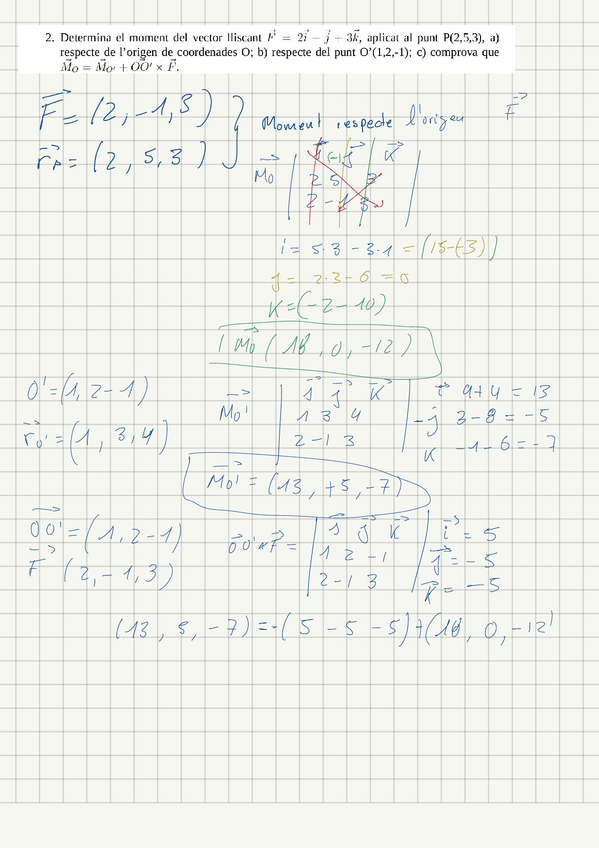 2. Determina el moment del vector lliscant F⃗ = 2i⃗ − j⃗ + 3k⃗, aplicat al punt P(2,5,3), a)
respecte de l'origen de coordenades O; b) respecte del punt O'(1,2,-1); c) comprova que
M⃗_O = M⃗_O' + OO⃗' × F⃗.
F⃗ = (2, -1, 3)
r⃗_P = (2, 5, 3)
Moment respecte l'origen F⃗
M⃗o | i⃗ (-1) j⃗ k⃗ |
2 5 3
2 -1 3
i = 5·3 - 3·1 = (15-(-3))
j = 2·3 - 6 = 0
K = (-2-10)
M⃗o (18, 0, -12)
O' = (1, 2 -1)
r⃗o' = (1, 3, 4)
M⃗o' | i⃗ j⃗ k⃗ |
1 3 4
2 -1 3
i⃗ 9+4 = 13
-j⃗ 3-8 = -5
K -1-6 = -7
M⃗o' = (13, +5, -7)
OO⃗' = (1, 2 -1)
F⃗ (2, -1, 3)
O⃗O' × F⃗ = | i⃗ j⃗ k⃗ |
1 2 -1
2 -1 3
i⃗ = 5
j⃗ = -5
k⃗ = -5
(13, 5, -7) = -(5 -5 -5) + (18, 0, -12)